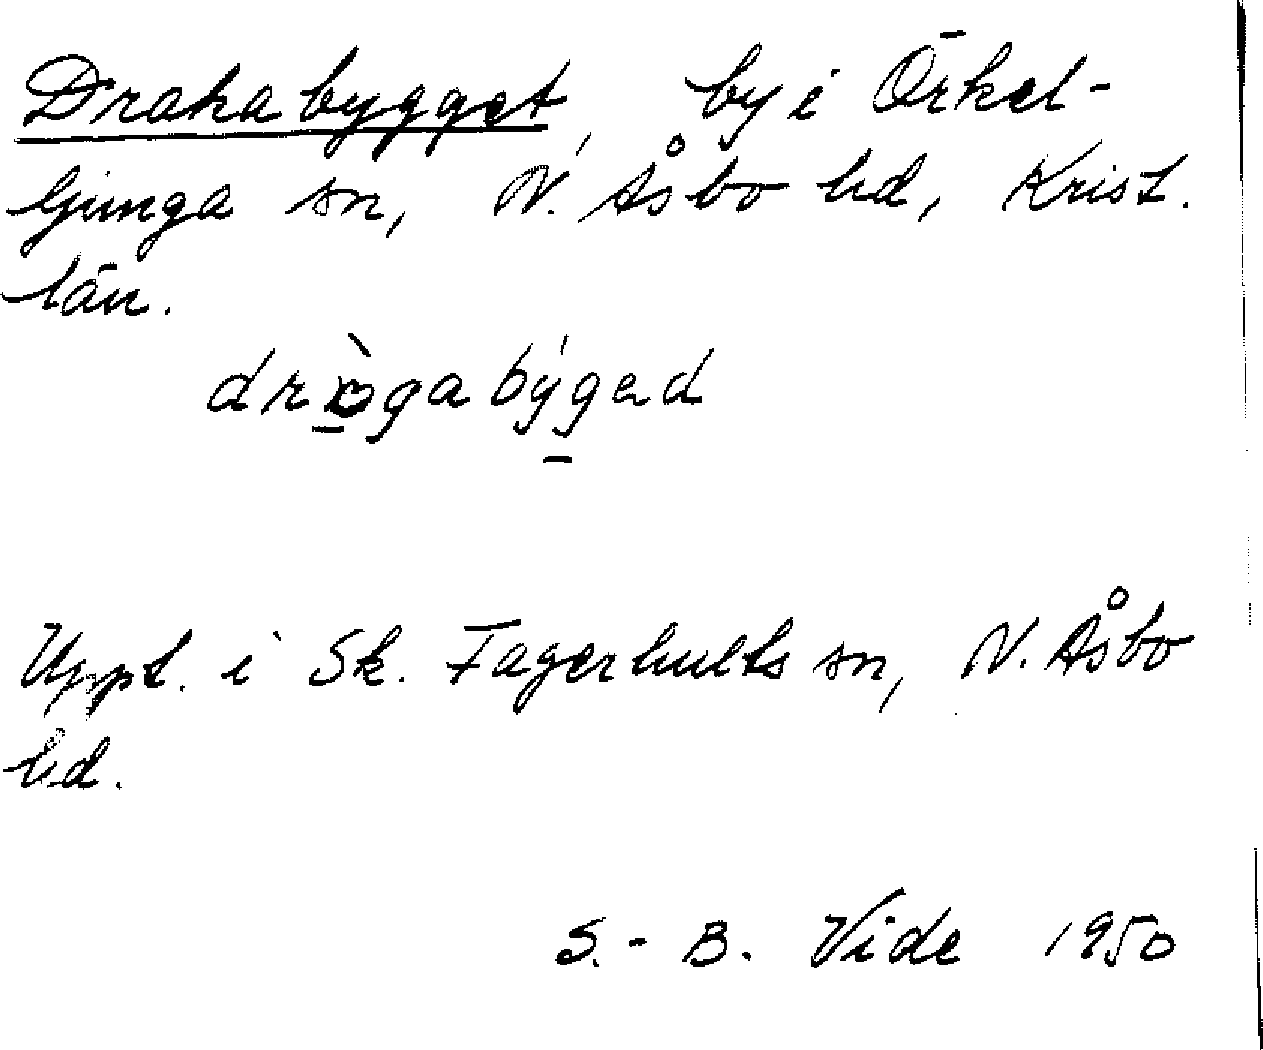 Drakabygget, by i Örkel-
ljunga sn, N. Åsbo hd, Krist.
län.
drògabýgad
Uppt. i Sk. Fagerhults sn, N. Åsbo
hd.
S.-B. Vide 1950